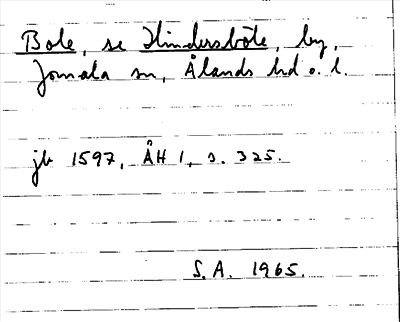 Bole, se Hindersböle, by,
Jomala sn, Ålands hd o. l.
jb 1597, ÅH 1, s. 325.
S.A. 1965.